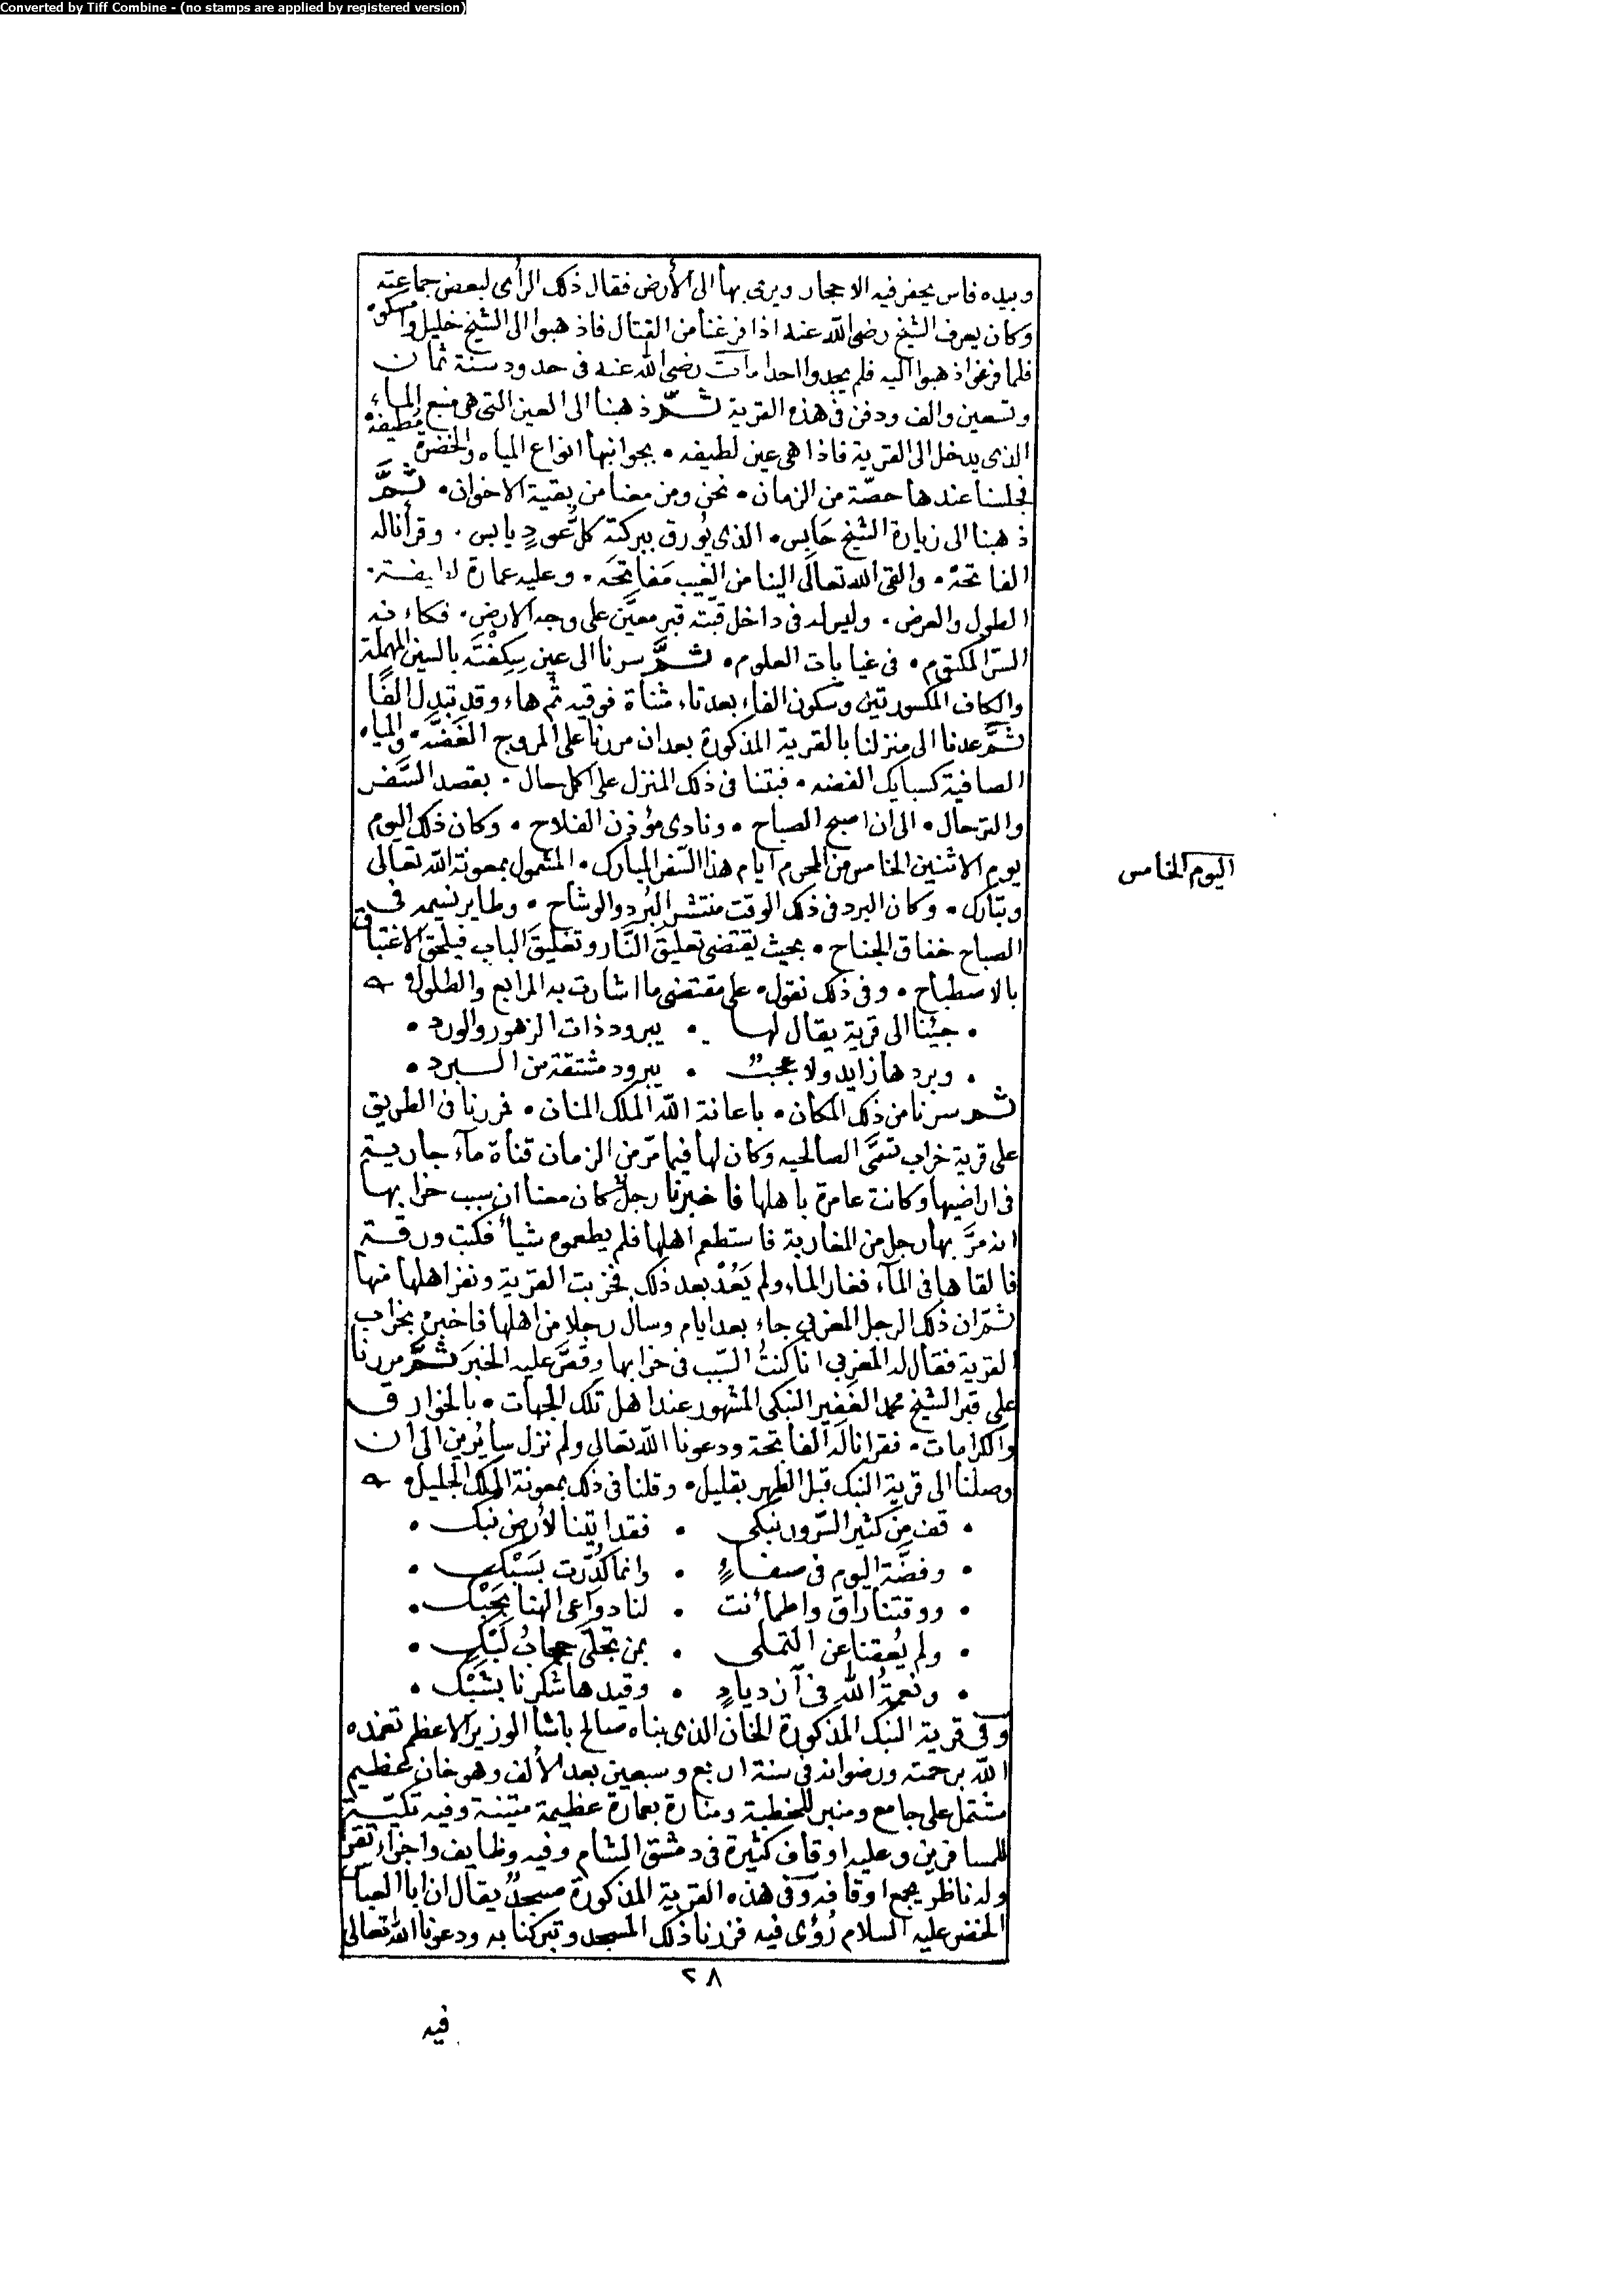 Converted by Tiff Combine - (no stamps are applied by registered version)
وبيده فاس يحفر فيه الاحجار ويرمى بها الى الأرض فقال ذلك الرأى لبعض جماعته
وكان يعرف الشيخ رضى الله عنه اذا فرغنا من القتال فاذهبوا الى الشيخ خليل وامسكوه
فلما فرغوا ذهبوا اليه فلم يجدوا احدا مات رضى الله عنه فى حدود سنة ثمان
وتسعين والف ودفن فى هذه القرية ثم ذهبنا الى العين التى هى منبع الماء
الذى يدخل الى القرية فاذا هى عين لطيفه • بجوانبها انواع المياه والخضرة مطيفة
فجلسنا عندها حصّة من الزمان • نحن ومن معنا من بقية الاخوان • ثمَّ
ذهبنا الى زيارة الشيخ حَابِس • الذى يُورق ببركته كلُّ عودٍ يابس • وقرأنا له
الفاتحة • والقى الله تعالى الينا من الغيب مَفاتِحَه • وعليه عمارة
الطول والعرض • وليس له فى داخل قبّته قبر معيَّن على وجه الارض • فكاءنه
السرّ المكتوم • فى غيابات العلوم • ثمَّ سرنا الى عين سِكِفْتَه بالسين المهملة
والكاف المكسورتين وسكون الفاء بعد تاء مثناة فوقيه ثم هاء وقد تبدل الفًا
ثمَّ عدنا الى منزلنا بالقرية المذكورة بعد ان مررنا على المروج الغَضَّه • والمياه
الصافية كسبايك الفضه • فبتنا فى ذلك المنزل على اكمل حال • بقصد السَّفر
والترحال • الى ان اصبح الصباح • ونادى مؤذن الفلاح • وكان ذلك اليوم
يوم الاثنين الخامس من المحرم ايام هذا السّفر المبارك • المشمول بمعونة الله تعالى
وتبارك • وكان البرد فى ذلك الوقت منتشر البُرد والوشاح • وطاير نسيمه فى
الصباح خفاق الجناح • بحيث يقتضى تعليقَ النَّار وتغليقَ الباب فيلحق الاغتباق
بالاصطباح • وفى ذلك نقول • على مقتضى ما اشارت به المرابع والطلول •
• جئنا الى قرية يقال لها • يبرود ذات الزهور والورد •
• وبردها زايد ولا عجبٌ • يبرود مشتقة من البرد •
ثم سرنا من ذلك المكان • باعانة الله الملك المنان • فمررنا فى الطريق
على قرية خراب تسمَّى الصالحيه وكان لها فيما مرّ من الزمان قناة مآء جاريتم
فى اراضيها وكانت عامرة باهلها فاخبرنا رجلٌ كان معنا ان سبب خرابها
انه مرَّ بها رجل من المغاربة فاستطعم اهلها فلم يطعموه شيأ فكتب ورقة
فالقاها فى المآء فغار الماء ولم يَعُدْ بعد ذلك فخربت القرية ونفر اهلها منها
ثم ان ذلك الرجل المغربي جاء بعد ايام وسأل رجلا من اهلها فاخبره بخراب
القرية فقال له المغربي انا كنتُ السّبب فى خرابها وقصَّ عليه الخبرَ ثمَّ مررنا
على قبر الشيخ محمد الغفير النبكى المشهور عند اهل تلك الجهات • بالخوارق
والكرامات • فقرانا له الفاتحة ودعونا الله تعالى ولم نزل سايرين الى ان
وصلنا الى قرية النبك قبل الظهر بقليل • وقلنا فى ذلك بمعونة الملك الجليل •
• قف من كثير السّرور نبكى • فقد اتينا لأرض نبك •
• وفضّة اليوم فى صفاءٍ • وانما كُدّرت بسَبْك •
• ووقتنا راق واطمأنت • لنا دواعى الهنا بحَبْك •
• ولم يُعقنا عن التملى • بمن تجلّى حجابُ لَبْك •
• ونعمةُ الله فى آزديادٍ • وقيدها شكرنا بشَبْك •
وفى قرية النبك المذكورة الخان الذى بناه صالح باشا الوزير الاعظم تغمده
الله برحمته ورضوانه فى سنة اربع وسبعين بعد الألف وهو خان عظيم
مشتمل على جامع ومنبر للخطبة ومنارة بعمارة عظيمة متينة وفيه تكيّة
للمسافرين وعليه اوقاف كثيرة فى دمشق الشام وفيه وظايف واجزاء تقرأ
وله ناظر يجمع اوقافه وفى هذه القرية المذكورة مسجدٌ يقال ان ابا العباس
الخضر عليه السلام رُؤى فيه فزرنا ذلك المسجد وتبركنا به ودعونا الله تعالى
اليوم الخامس
٢٨
فيه